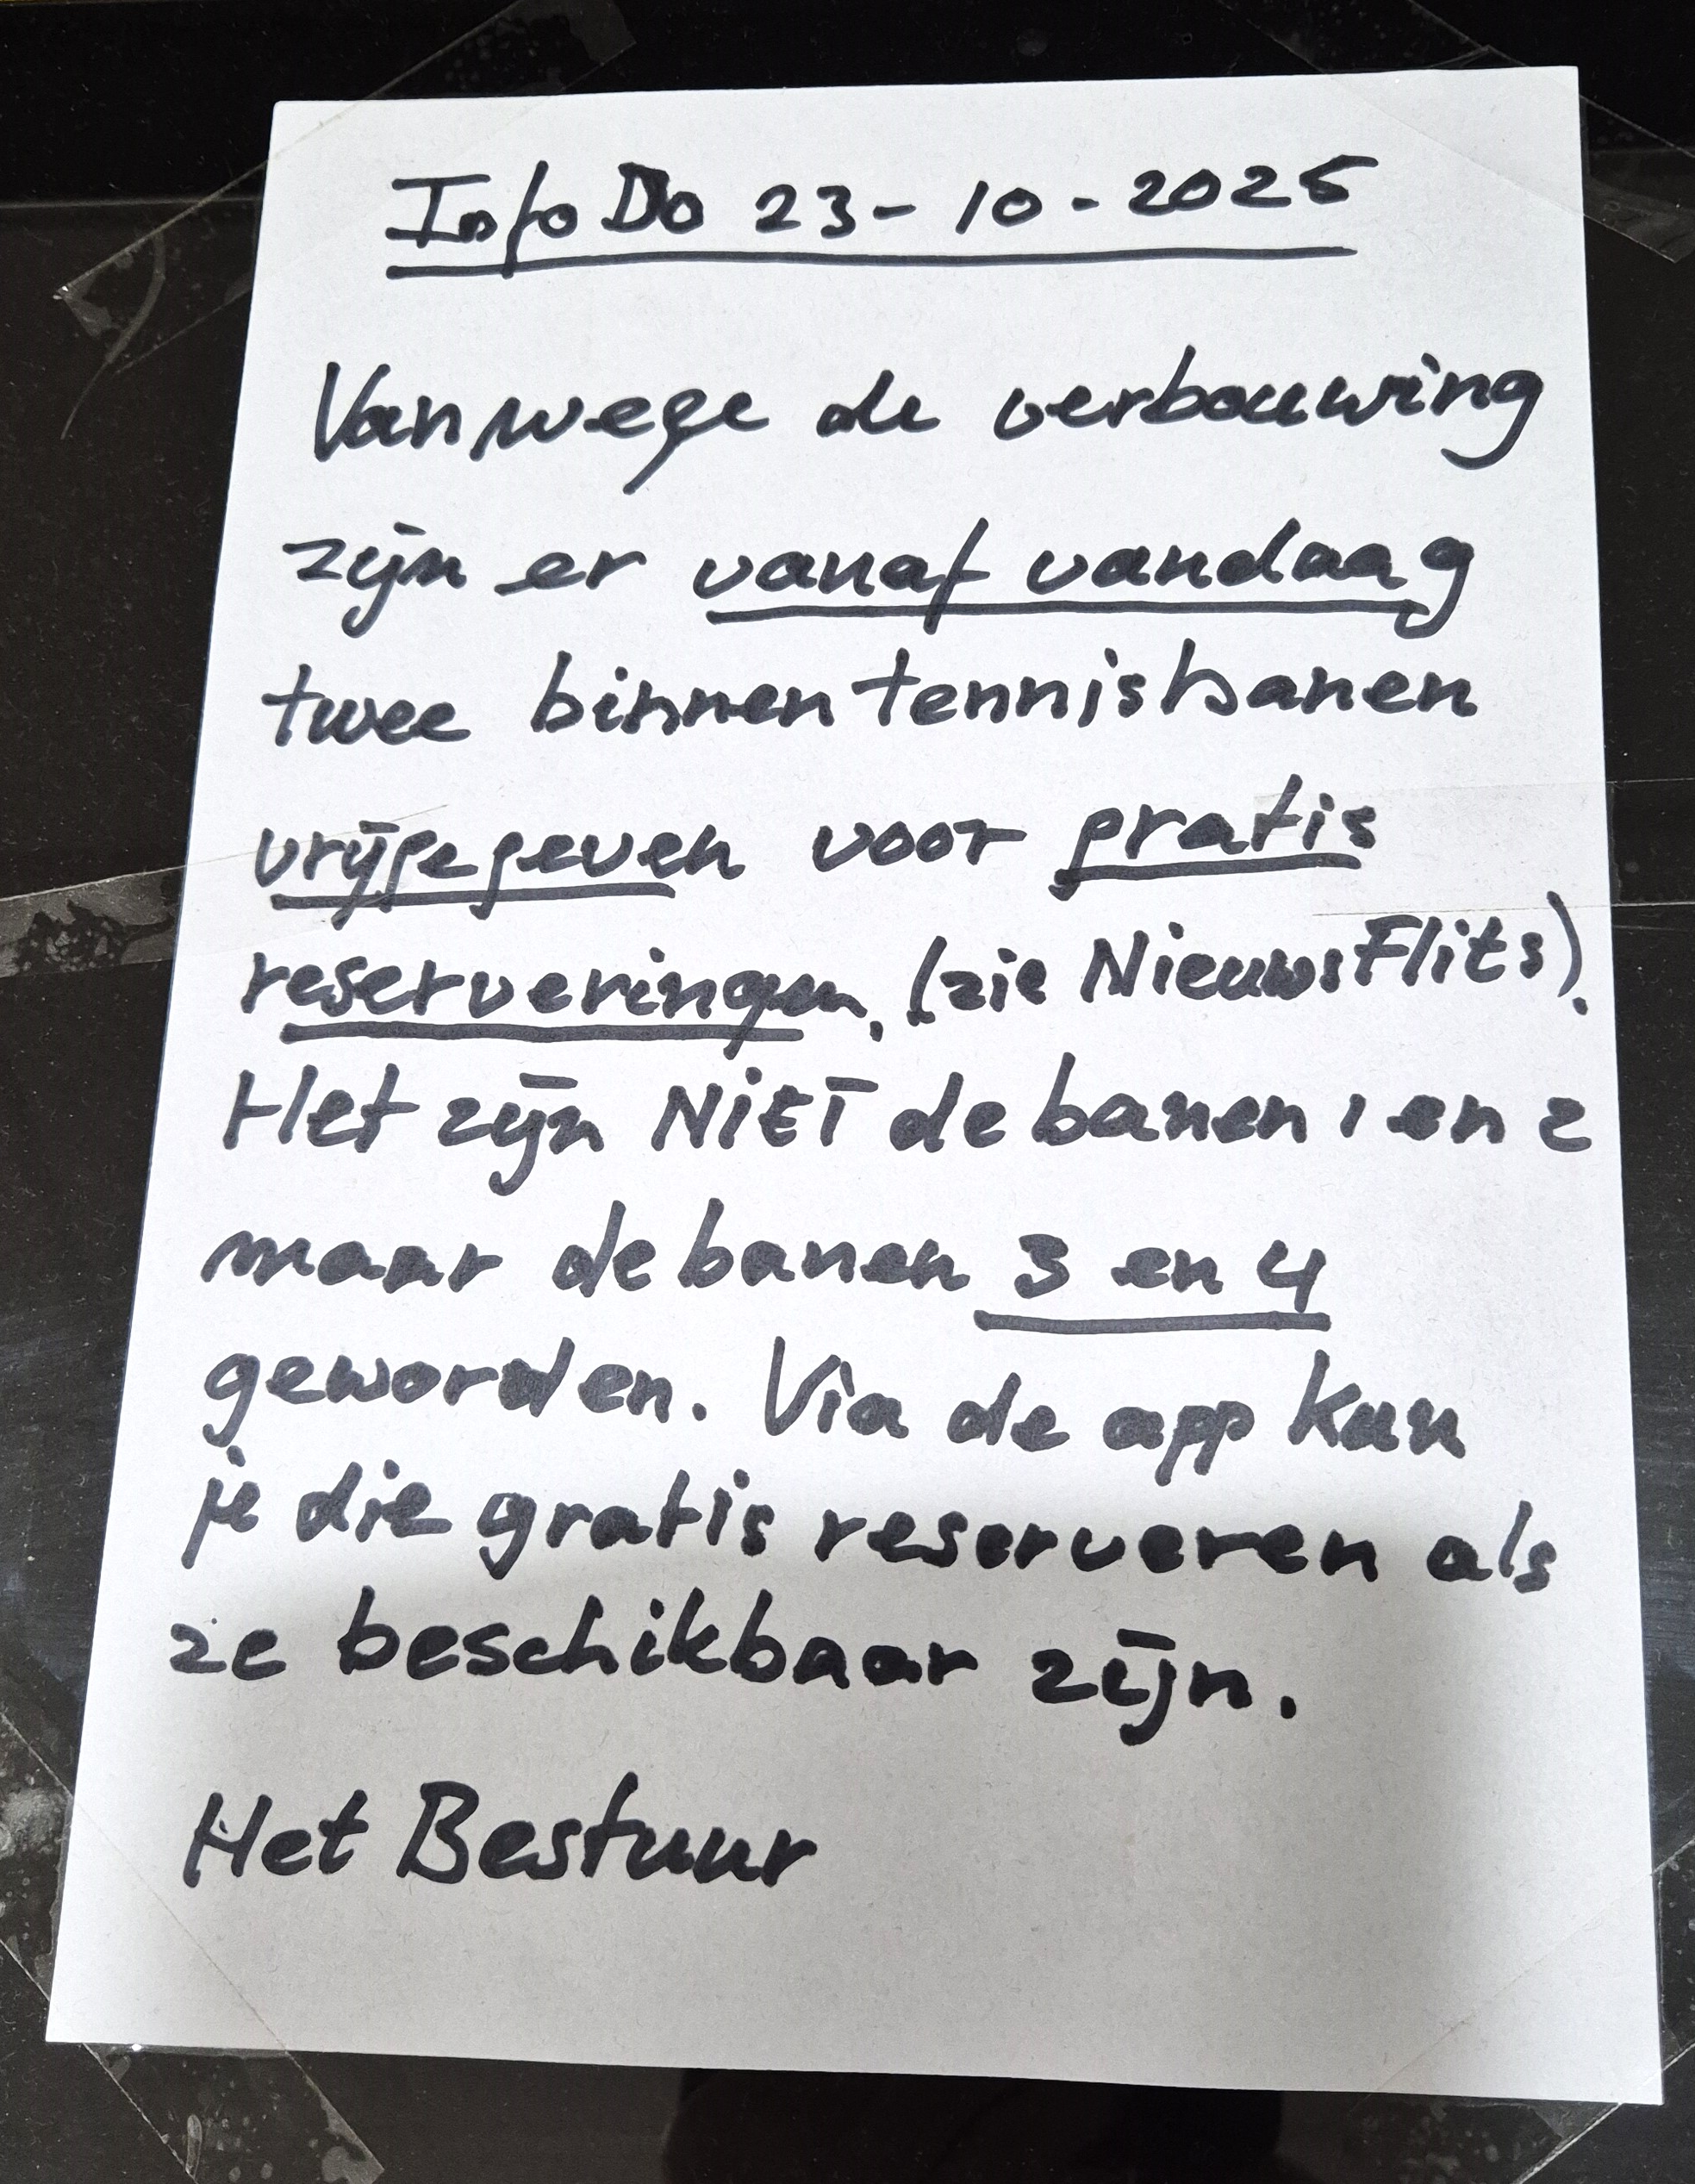 Info Do 23-10-2025
Vanwege de verbouwing
zijn er vanaf vandaag
twee binnentennisbanen
vrijgegeven voor gratis
reserveringen. (zie NieuwsFlits).
Het zijn NIET de banen 1 en 2
maar de banen 3 en 4
geworden. Via de app kun
je die gratis reserveren als
ze beschikbaar zijn.
Het Bestuur